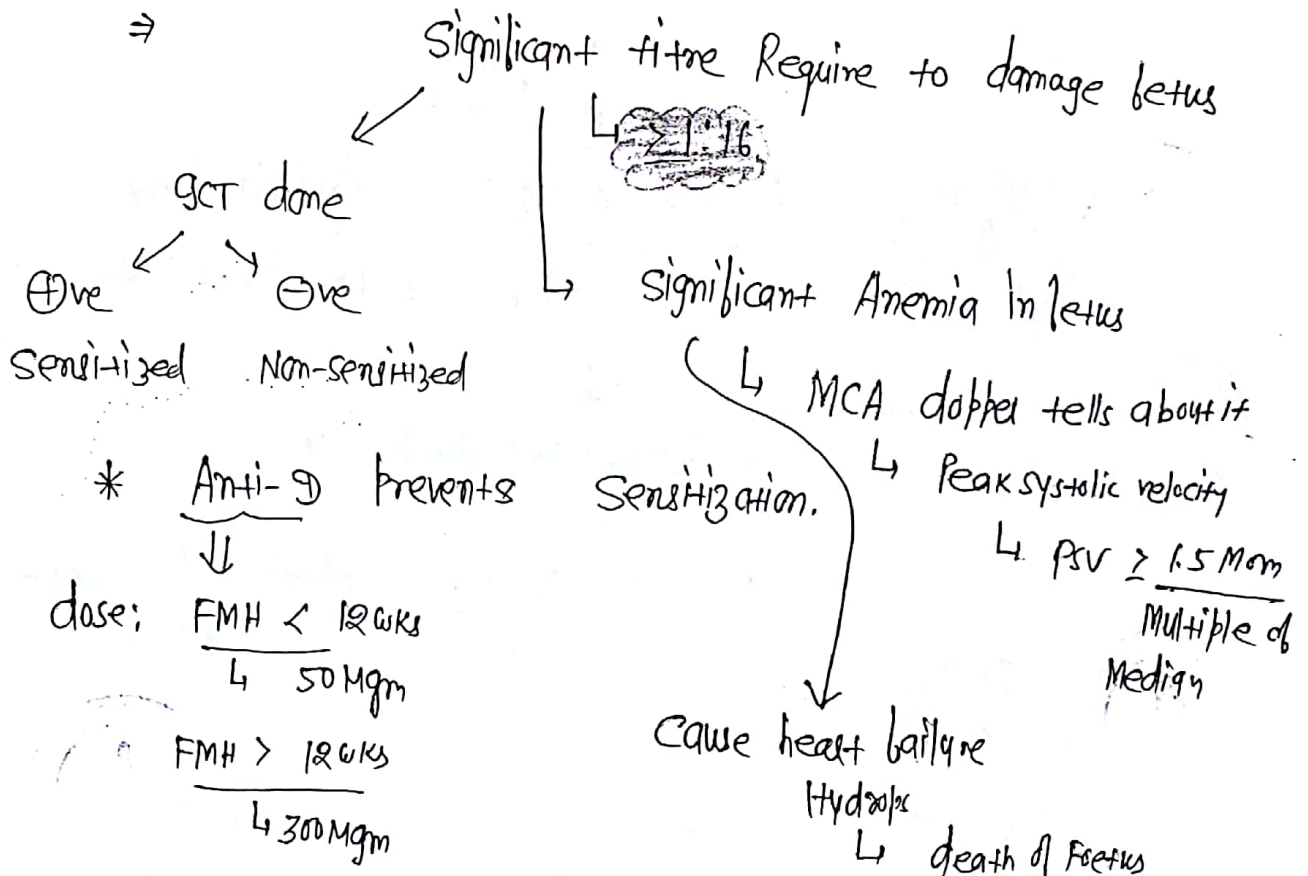 ⇒ Significant titre Require to damage fetus
↳ ≥ 1:16
ICT done
⊕ve ⊖ve
Sensitized Non-sensitized
↳ Significant Anemia in fetus
↳ MCA doppler tells about it
↳ Peak systolic velocity
↳ PSV ≥ 1.5 Mom
Multiple of
Median
* Anti-D Prevents Sensitization.
⇓
dose: FMH < 12 wks
↳ 50 Mgm
FMH > 12 wks
↳ 300 Mgm
Cause heart failure
Hydrops
↳ death of Foetus